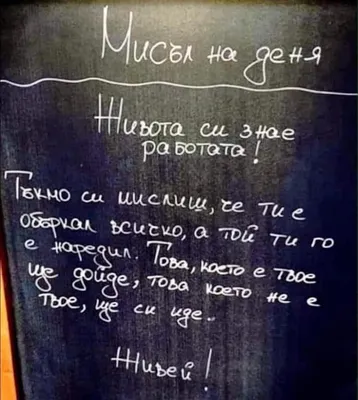 Мисъл на деня
Живота си знае
работата!
Тъкмо си мислиш, че ти е
объркал всичко, а той ти го
е наредил. Това, което е твое
ще дойде, това което не е
твое, ще си иде..
Живей!